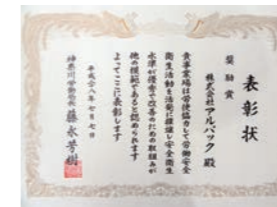 表彰状
奨励賞
株式会社アルバック殿
貴事業場は労使協力して労働安全
衛生活動を活発に推進し安全衛生
水準が優秀で改善のための取組みが
他の模範であると認められます
よってここに表彰します
平成二八年七月七日
神奈川労働局長 藤永芳樹